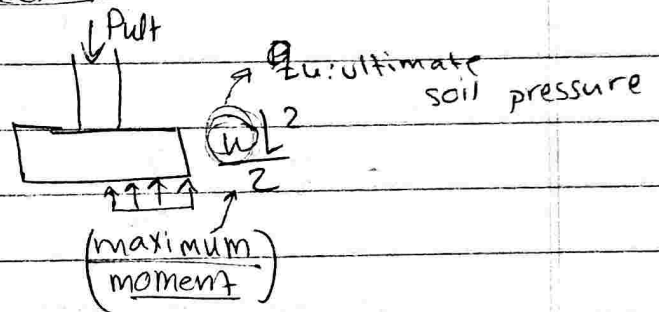 Pult
qu: ultimate
soil pressure
wL²
2
(maximum
moment)